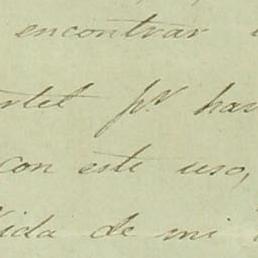 encontrar
pr. has
con este uso,
ida de mi